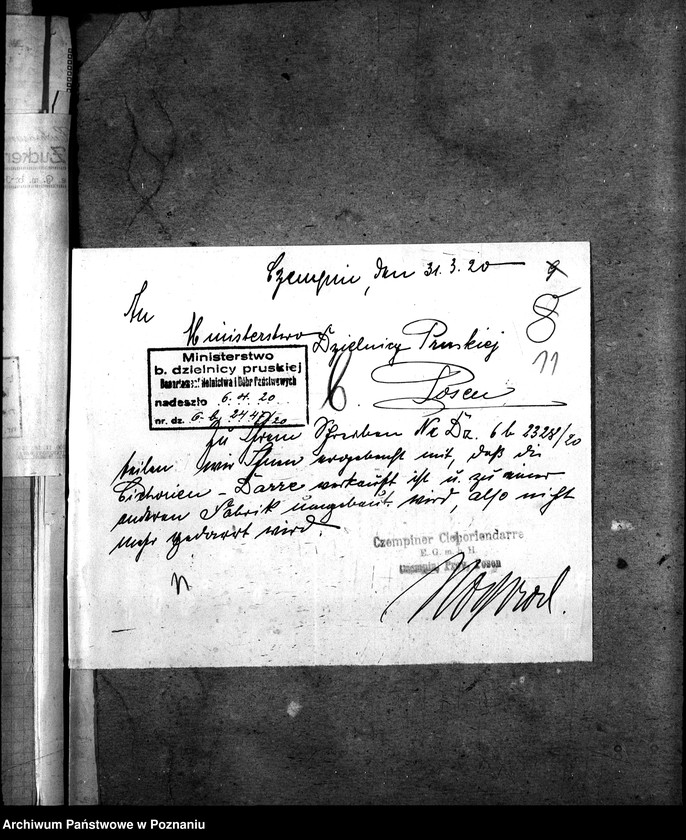 Zucker
Czempin, den 31.3.20
8
An
11
Ministerstwo Dzielnicy Pruskiej
Posen
Ministerstwo
b. dzielnicy pruskiej
Departament Rolnictwa i Dóbr Państwowych
nadeszło 6.4.20
nr. dz. 6 b 2447/20
6.
Zu Ihrem Schreiben Nr Dz. 6 b 2328/20
teilen wir Ihnen ergebenst mit, daß die
Cichorien-Darre verkauft ist u. zu einer
anderen Fabrik umgebaut wird, also nicht
mehr gedarrt wird.
Czempiner Cichoriendarre
E. G. m. b. H.
Czempin, Prov. Posen
Archiwum Państwowe w Poznaniu